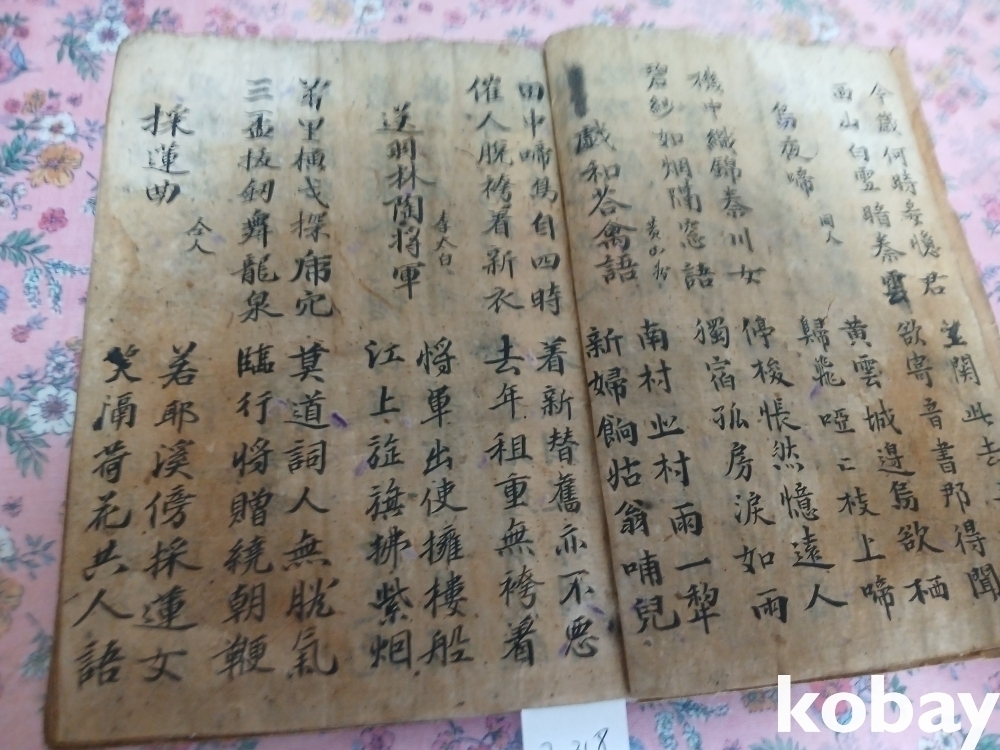 今歲何時妾憶君
西山白雪暗秦雲
關此去
欲寄音書那得聞
烏夜啼
同人
黃雲城邊烏欲栖
歸飛啞〻枝上啼
機中織錦秦川女
停梭悵然憶遠人
碧紗如烟隔窓語
獨宿孤房淚如雨
戲和答禽語
黃山谷
南村北村雨一犂
新婦餉姑翁哺兒
田中啼鳥自四時
催人脫袴着新衣
着新替舊亦不惡
去年租重無袴着
送羽林陶將軍
李太白
將軍出使擁樓船
江上旌旗拂紫烟
萬里橫戈探虎穴
三盃拔劒舞龍泉
莫道詞人無膽氣
臨行將贈繞朝鞭
採蓮曲
仝人
若耶溪傍採蓮女
笑隔荷花共人語
kobay